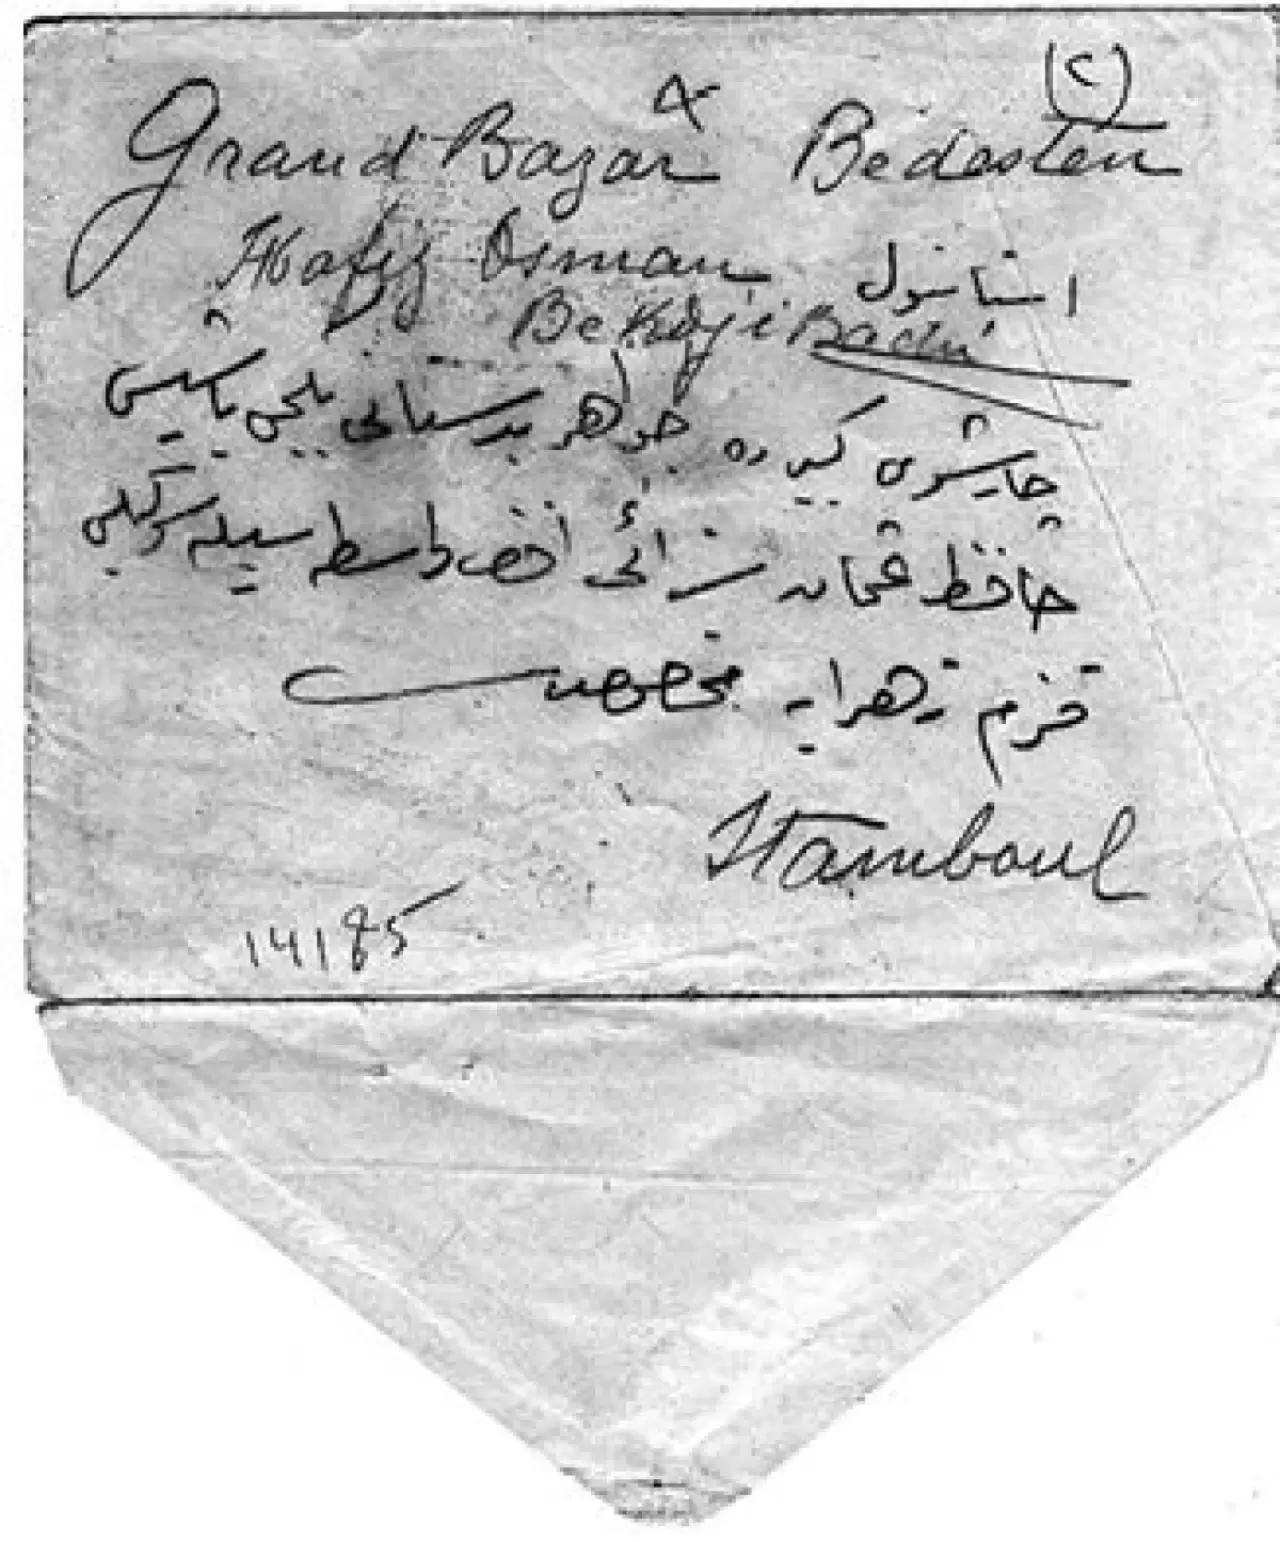 Grand Bazar Bedesten
Hafiz Osman استانبول
Bekdji Bachi
چارشوی كبیرده جواهر بدستانی بكجی باشیسی
حافظ عثمان افندی واسطه سیله
قزم زهرایه مخصوصدر
Stamboul
14185